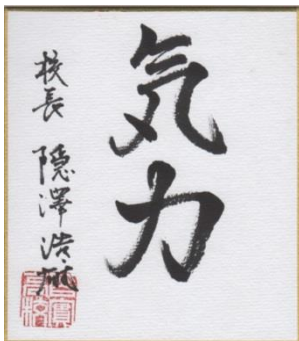 気力
校長 隠澤浩